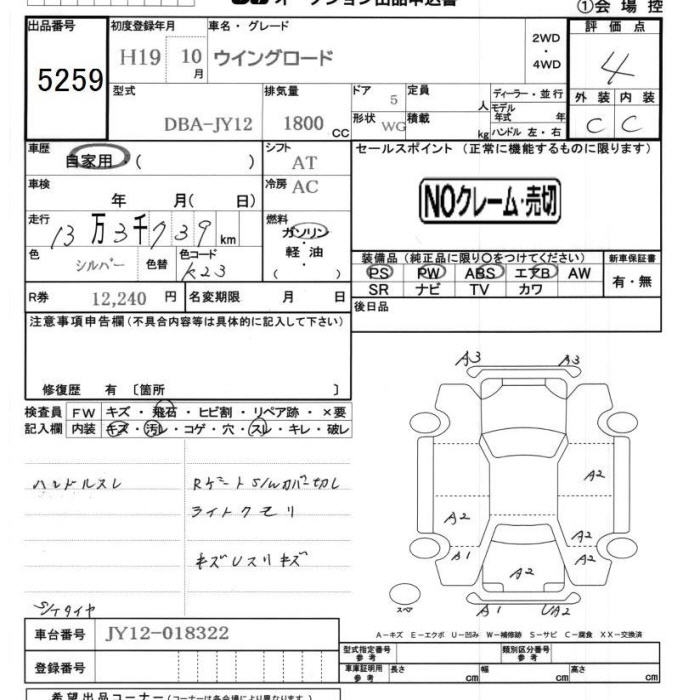 オークション出品申込書
①会場控
出品番号 初度登録年月 車名・グレード 評価点
5259 H19 10月 ウイングロード 2WD・4WD 4
型式 排気量 ドア 定員 ディーラー・並行 外装 内装
DBA-JY12 1800 CC 5 人 モデル年式 年 C C
形状 WG 積載 kg ハンドル 左・右
車歴 シフト セールスポイント (正常に機能するものに限ります)
自家用 ( ) AT
車検 冷房 AC NOクレーム・売切
年 月( 日)
走行 燃料
13万3千739km ガソリン・軽油 ( )
色 シルバー 色替 色コード K23
装備品 (純正品に限り○をつけてください) 新車保証書
PS PW ABS エアB AW 有・無
SR ナビ TV カワ
R券 12,240円 名変期限 月 日 後日品
注意事項申告欄 (不具合内容等は具体的に記入して下さい)
修復歴 有 〔箇所 〕
検査員 FW キズ・飛石・ヒビ割・リペア跡・×要
記入欄 内装 キズ・汚レ・コゲ・穴・スレ・キレ・破レ
ハンドルスレ
ライトクモリ
キズUスリキズ
S/Kタイヤ
A3 A3
A2
A2 A2
A1 A2
A2
スペア A1 UA2
A-キズ E-エクボ U-凹み W-補修跡 S-サビ C-腐食 XX-交換済
車台番号 JY12-018322
登録番号
型式指定番号 参考 類別区分番号 参考
車庫証明用 参考 長さ cm 幅 cm 高さ cm
希望出品コーナー (コーナーは各会場により異なります。)